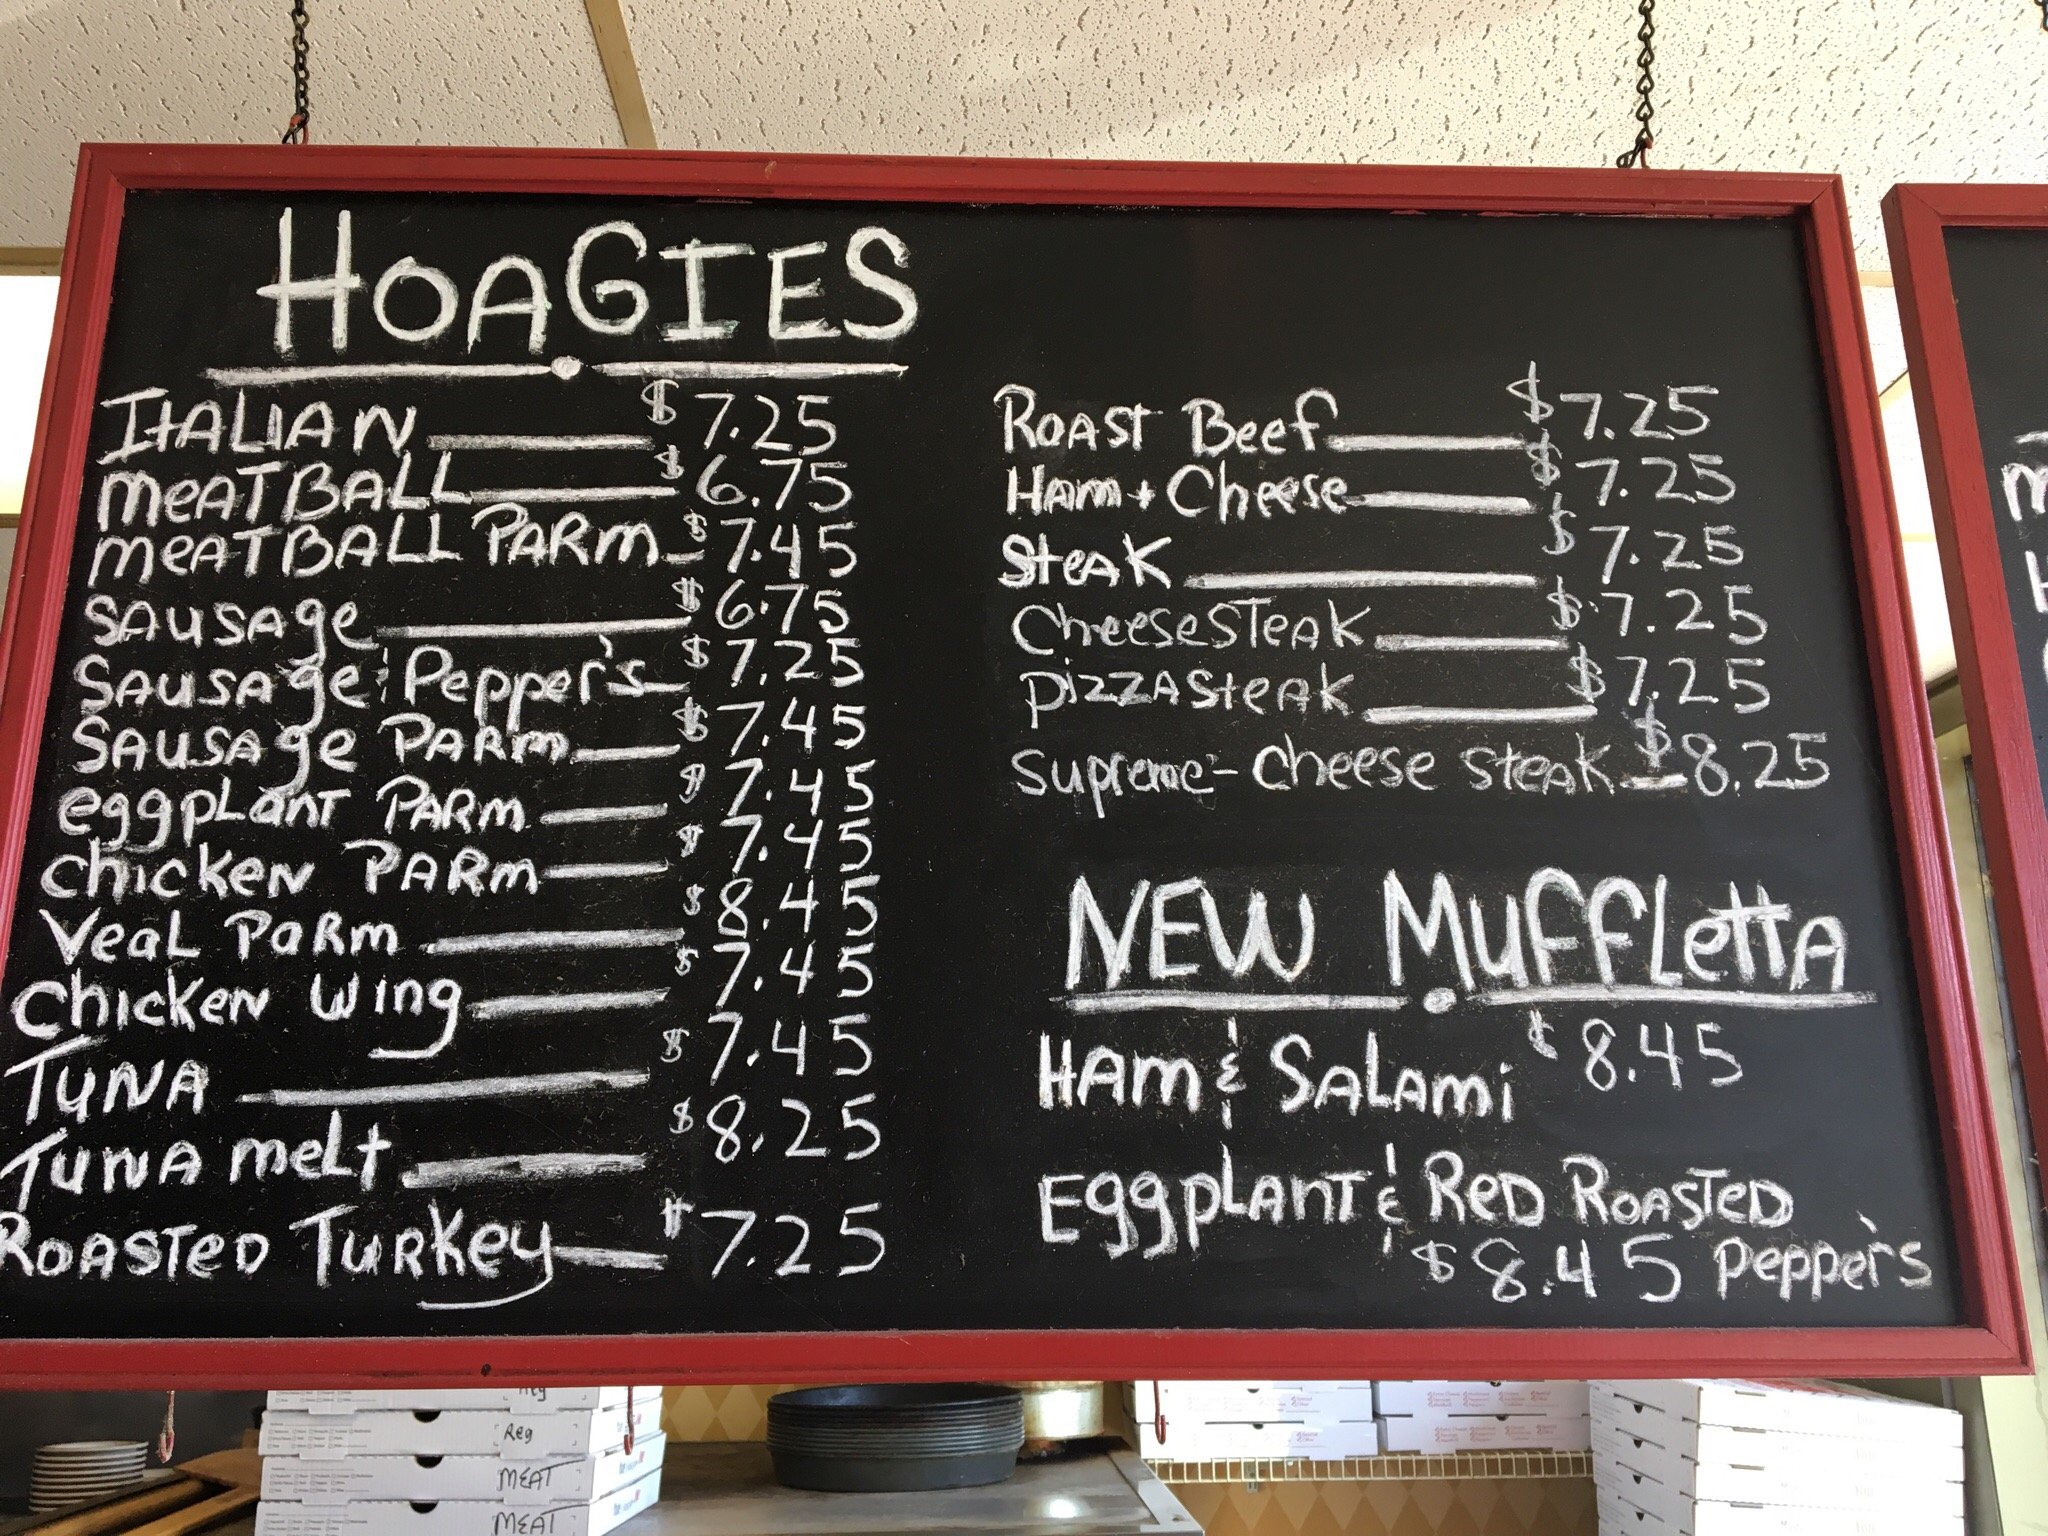 HOAGIES
ITALIAN $ 7.25
MEATBALL $ 6.75
MEATBALL PARM $ 7.45
SAUSAge $ 6.75
SAUSAge & Pepper's $ 7.25
SAUSAge PARM $ 7.45
eggpLanT PARM $ 7.45
chicKeN PARM $ 7.45
VeaL PaRm $ 8.45
ChicKeN Wing $ 7.45
TUNA $ 7.45
TUNA meLt $ 8.25
ROASTeD TURKey $ 7.25
ROAST Beef $7.25
HAm + Cheese $ 7.25
SteAK $ 7.25
CheeseSTeAK $ 7.25
PIZZASteAK $7.25
Supreme - cheese steaK $ 8.25
NEW MuffLettA
HAm & SALAmi $ 8.45
EggpLAnT & ReD ROASTeD
$ 8.45 peppers
Reg
Reg
MEAT
MEAT